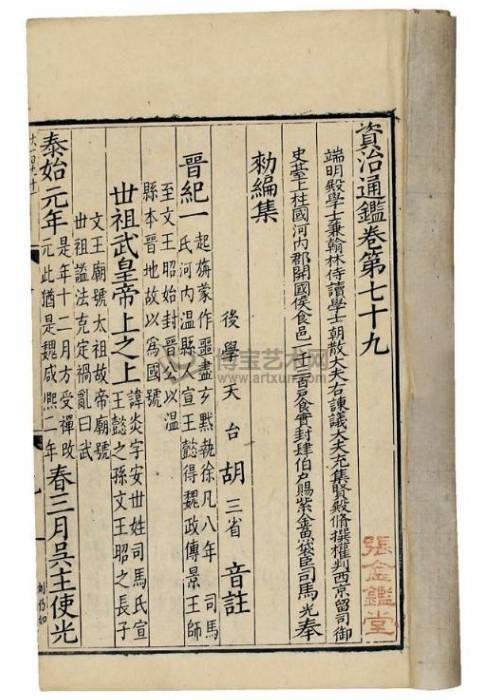 資治通鑑卷第七十九
端明殿學士兼翰林侍讀學士朝散大夫右諫議大夫充集賢殿脩撰權判西京留司御
史臺上柱國河内郡開國侯食邑一千三百戶食實封肆伯戶賜紫金魚袋臣司馬光奉
勑編集
後學天台胡三省音註
晉紀一 起旃蒙作噩盡玄黓執徐凡八年 司馬
氏河内温縣人宣王懿得魏政傳景王師
至文王昭始封晉公以温
縣本晉地故以爲國號
丗祖武皇帝上之上 諱炎字安丗姓司馬氏宣
王懿之孫文王昭之長子
文王廟號太祖故帝廟號
丗祖謚法克定禍亂曰武
泰始元年 是年十二月方受禪改
元此猶是魏咸熙二年 春三月吳主使光
張金鑑堂
博宝艺术网
www.artxun.com